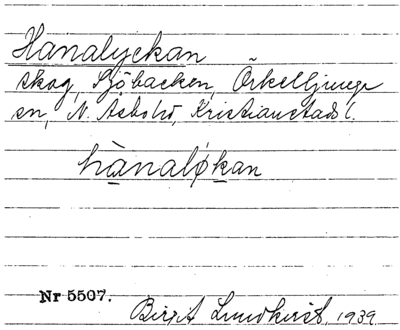 Hanalyckan
skog, Sjöbacken, Örkelljunga
sn, N. Åsbo hd, Kristianstads l.
hànalǿkan
Nr 5507.
Birgit Lundkvist, 1939